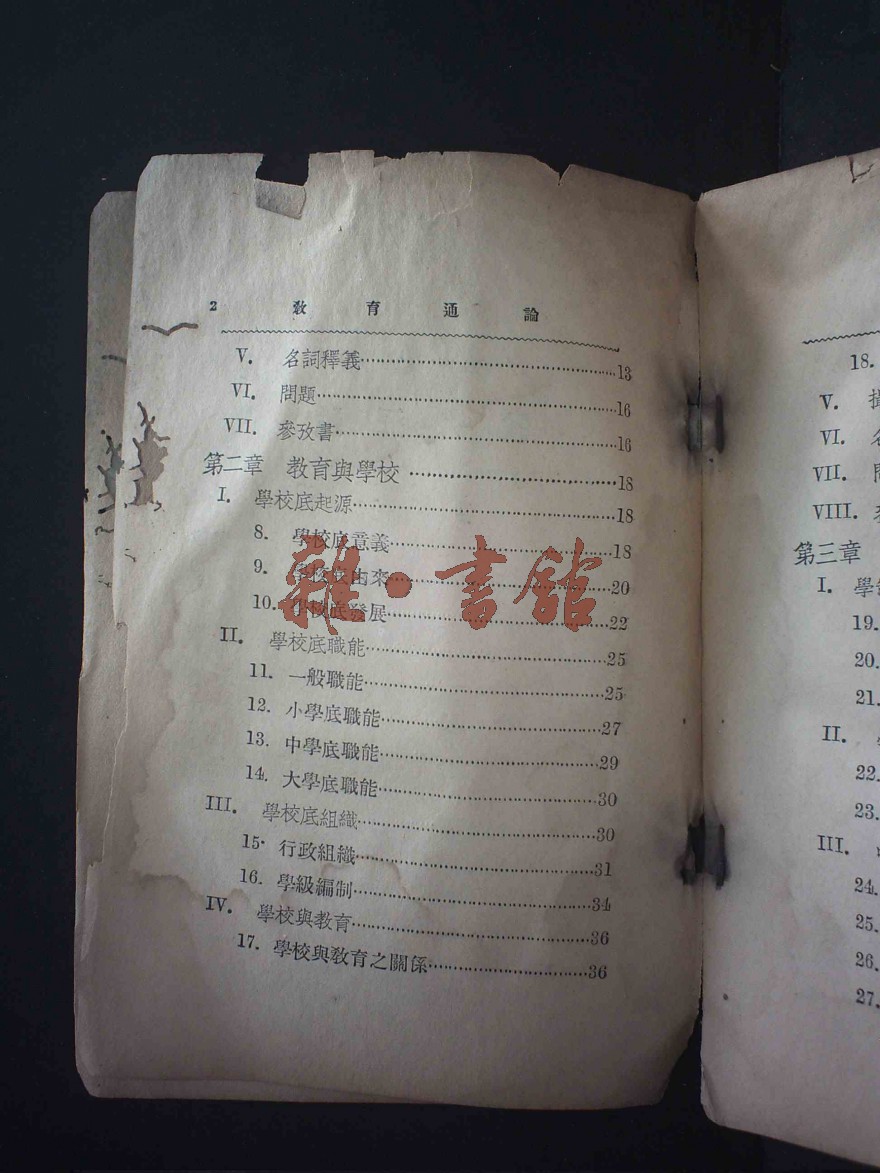 2 教育通論
V. 名詞釋義……13
VI. 問題……16
VII. 參攷書……16
第二章 教育與學校……18
I. 學校底起源……18
8. 學校底意義……18
9. 學校底由來……20
10. 學校底發展……22
II. 學校底職能……25
11. 一般職能……25
12. 小學底職能……27
13. 中學底職能……29
14. 大學底職能……30
III. 學校底組織……30
15. 行政組織……31
16. 學級編制……34
IV. 學校與教育……36
17. 學校與教育之關係……36
雜·書館
18.
V.
VI.
VII.
VIII.
第三章
I. 學
19.
20.
21.
II.
22.
23.
III.
24.
25.
26.
27.